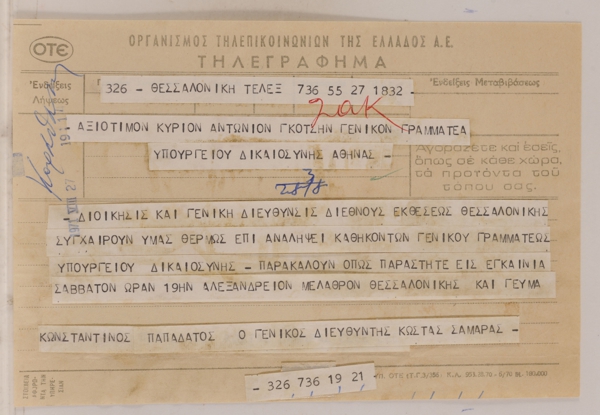 ΟΤΕ
ΟΡΓΑΝΙΣΜΟΣ ΤΗΛΕΠΙΚΟΙΝΩΝΙΩΝ ΤΗΣ ΕΛΛΑΔΟΣ Α.Ε.
ΤΗΛΕΓΡΑΦΗΜΑ
Ἐνδείξεις Λήψεως
Ἐνδείξεις Μεταβιβάσεως
326 - ΘΕΣΣΑΛΟΝΙΚΗ ΤΕΛΕΞ 736 55 27 1832 -
ΑΞΙΟΤΙΜΟΝ ΚΥΡΙΟΝ ΑΝΤΩΝΙΟΝ ΓΚΟΤΣΗΝ ΓΕΝΙΚΟΝ ΓΡΑΜΜΑΤΕΑ
ΥΠΟΥΡΓΕΙΟΥ ΔΙΚΑΙΟΣΥΝΗΣ ΑΘΗΝΑΣ -
Ἀγοράζετε καί ἐσεῖς,
ὅπως σέ κάθε χώρα,
τά προϊόντα τοῦ
τόπου σας.
28/8
- ΔΙΟΙΚΗΣΙΣ ΚΑΙ ΓΕΝΙΚΗ ΔΙΕΥΘΥΝΣΙΣ ΔΙΕΘΝΟΥΣ ΕΚΘΕΣΕΩΣ ΘΕΣΣΑΛΟΝΙΚΗΣ
ΣΥΓΧΑΙΡΟΥΝ ΥΜΑΣ ΘΕΡΜΩΣ ΕΠΙ ΑΝΑΛΗΨΕΙ ΚΑΘΗΚΟΝΤΩΝ ΓΕΝΙΚΟΥ ΓΡΑΜΜΑΤΕΩΣ
ΥΠΟΥΡΓΕΙΟΥ ΔΙΚΑΙΟΣΥΝΗΣ - ΠΑΡΑΚΑΛΟΥΝ ΟΠΩΣ ΠΑΡΑΣΤΗΤΕ ΕΙΣ ΕΓΚΑΙΝΙΑ
ΣΑΒΒΑΤΟΝ ΩΡΑΝ 19ΗΝ ΑΛΕΞΑΝΔΡΕΙΟΝ ΜΕΛΑΘΡΟΝ ΘΕΣΣΑΛΟΝΙΚΗΣ ΚΑΙ ΓΕΥΜΑ
ΚΩΝΣΤΑΝΤΙΝΟΣ ΠΑΠΑΔΑΤΟΣ Ο ΓΕΝΙΚΟΣ ΔΙΕΥΘΥΝΤΗΣ ΚΩΣΤΑΣ ΣΑΜΑΡΑΣ -
- 326 736 19 21